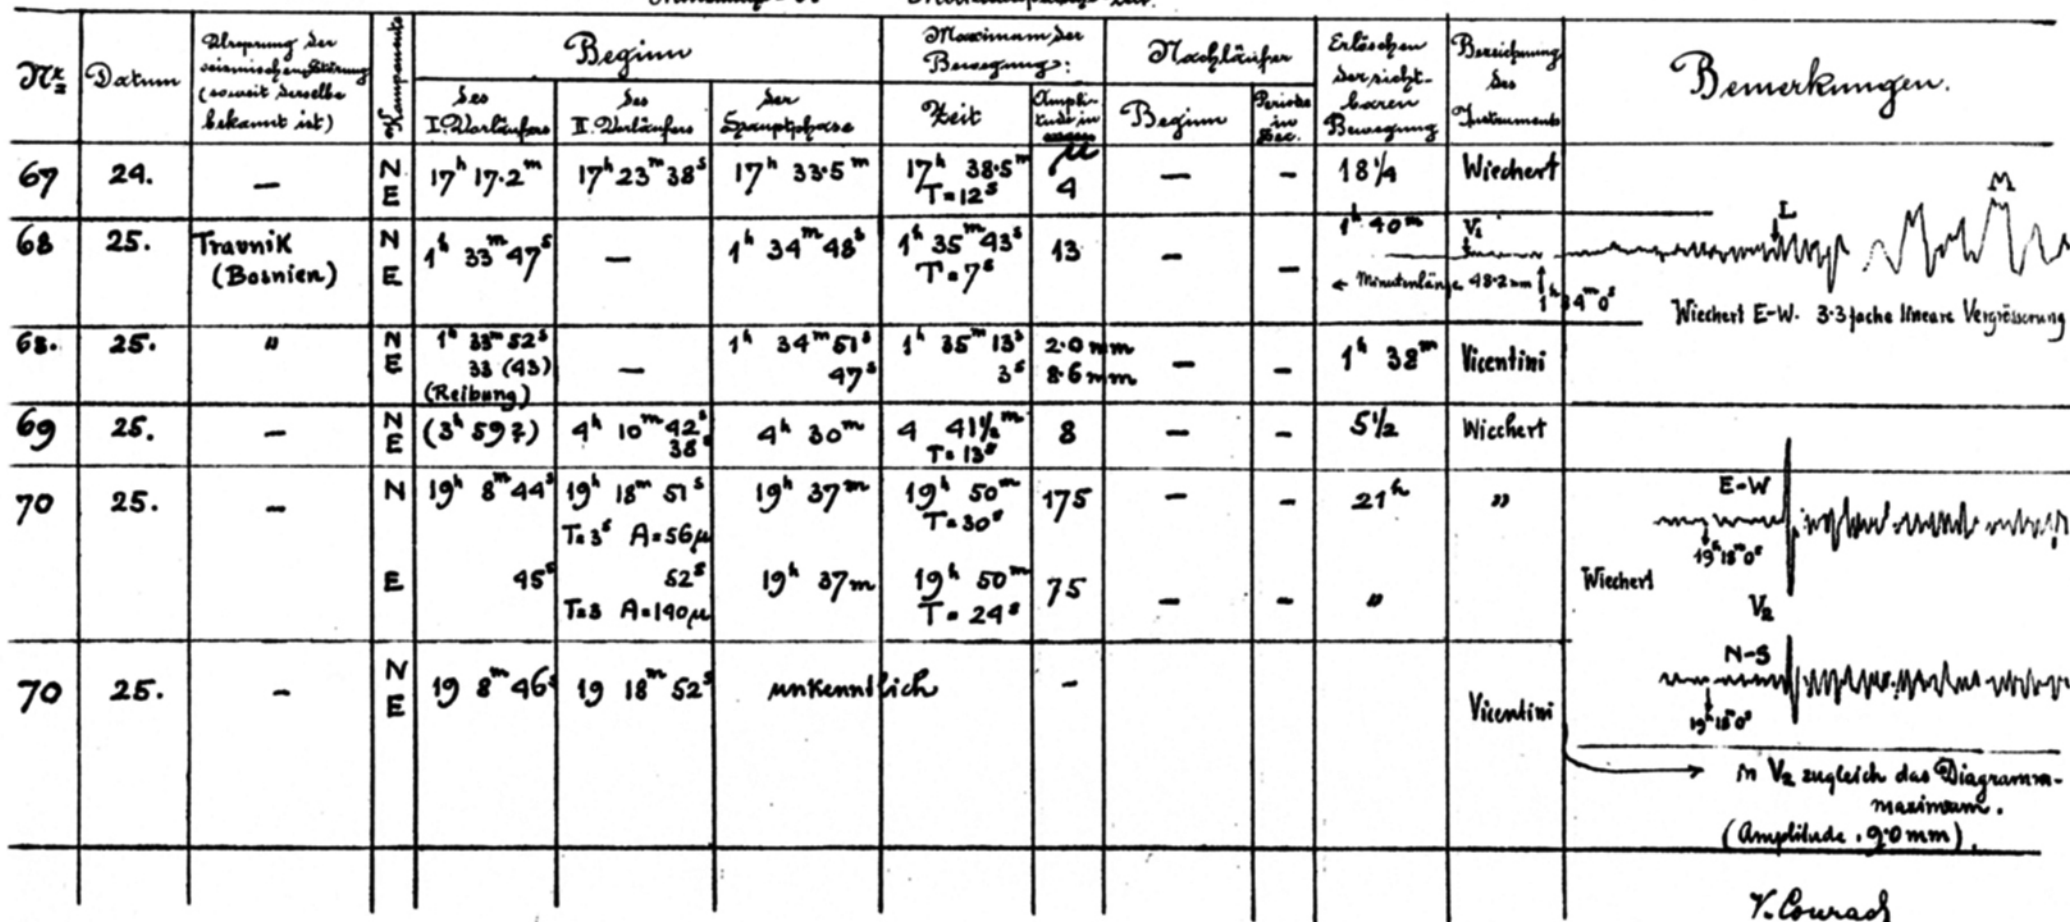 Nr
Datum
Ursprung der
seismischen Störung
(soweit derselbe
bekannt ist)
Komponente
Beginn
des
I. Vorläufers
des
II. Vorläufers
der
Hauptphase
Maximum der
Bewegung:
Zeit
Ampli-
tude in
μ
Nachläufer
Beginn
Periode
in
Sec.
Erlöschen
der sicht-
baren
Bewegung
Bezeichnung
des
Instruments
Bemerkungen.
67 24. — N E 17h 17.2m 17h 23m 38s 17h 33.5m 17h 38.5m T=12s 4 — — 18¼ Wiechert
68 25. Travnik (Bosnien) N E 1h 33m 47s — 1h 34m 48s 1h 35m 43s T=7s 13 — — 1h 40m
V₁ L M
← Minutenlänge 48.2mm 1h 34m 0s
Wiechert E-W. 3.3 fache lineare Vergrösserung
68. 25. " N 1h 33m 52s 1h 34m 51s 1h 35m 13s 2.0 mm
E 33 (43) — 47s 3s 8.6 mm — — 1h 38m Vicentini
(Reibung)
69 25. — N E (3h 59?) 4h 10m 42s 38s 4h 30m 4 41½m T=13s 8 — — 5½ Wiechert
70 25. — N 19h 8m 44s 19h 18m 51s 19h 37m 19h 50m 175 — — 21h "
T=3s A=56μ T=30s
E 45s 52s 19h 37m 19h 50m 75 — — "
T=3 A=140μ T=24s
E-W
19h 18m 0s
Wiechert
V₂
N-S
19h 18m 0s
70 25. — N E 19 8m 46s 19 18m 52s unkenntlich — Vicentini
in V₂ zugleich das Diagramm-
maximum.
(Amplitude . 9.0 mm).
V. Conrad